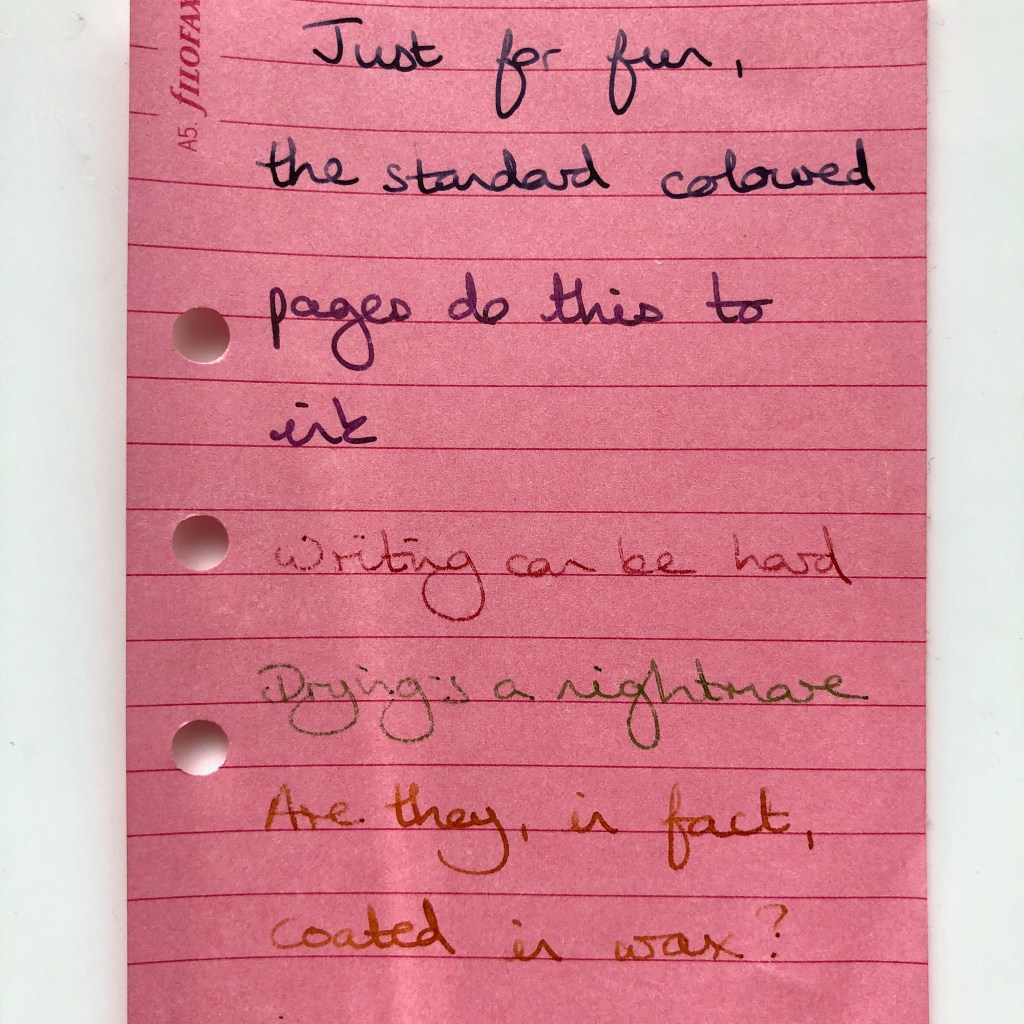 A5. fILOFAX
Just for fun,
the standard coloured
pages do this to
ink
Writing can be hard
Drying's a nightmare
Are they, in fact,
coated in wax?